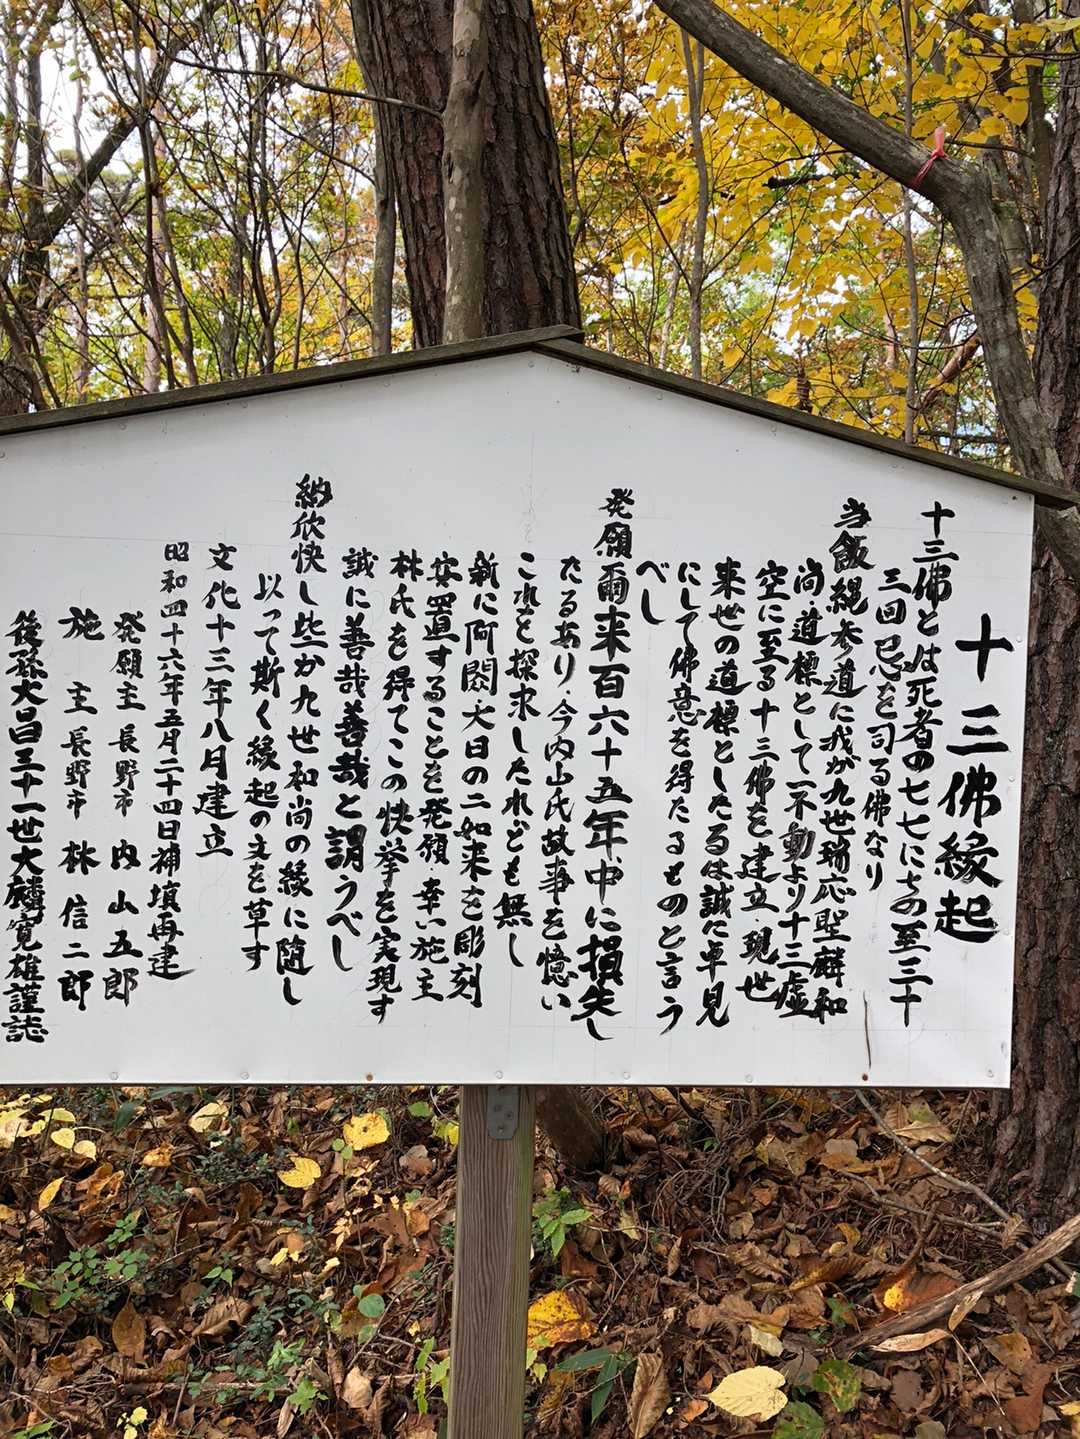 十三佛縁起
十三佛とは死者の七七に之の至三十
三回忌を司る佛なり
当飯縄参道に我が九世瑞応聖麟和
尚道標として一不動より十三虚
空に至る十三佛を建立·現世
来世の道標としたるは誠に卓見
にして佛意を得たるものと言う
べし
発願爾来百六十五年中に損失し
たるあり·今内山氏故事を憶い
これを探求したれども無し
新に阿閦·大日の二如来を彫刻
安置することを発願·幸い施主
林氏を得てこの快挙を実現す
誠に善哉善哉と謂うべし
納欣快し些か九世和尚の縁に随し
以って斯く縁起の文を草す
文化十三年八月建立
昭和四十六年五月二十四日補填再建
発願主 長野市 内山五郎
施主 長野市 林信二郎
後孫大昌三十一世大麟寛雄謹誌